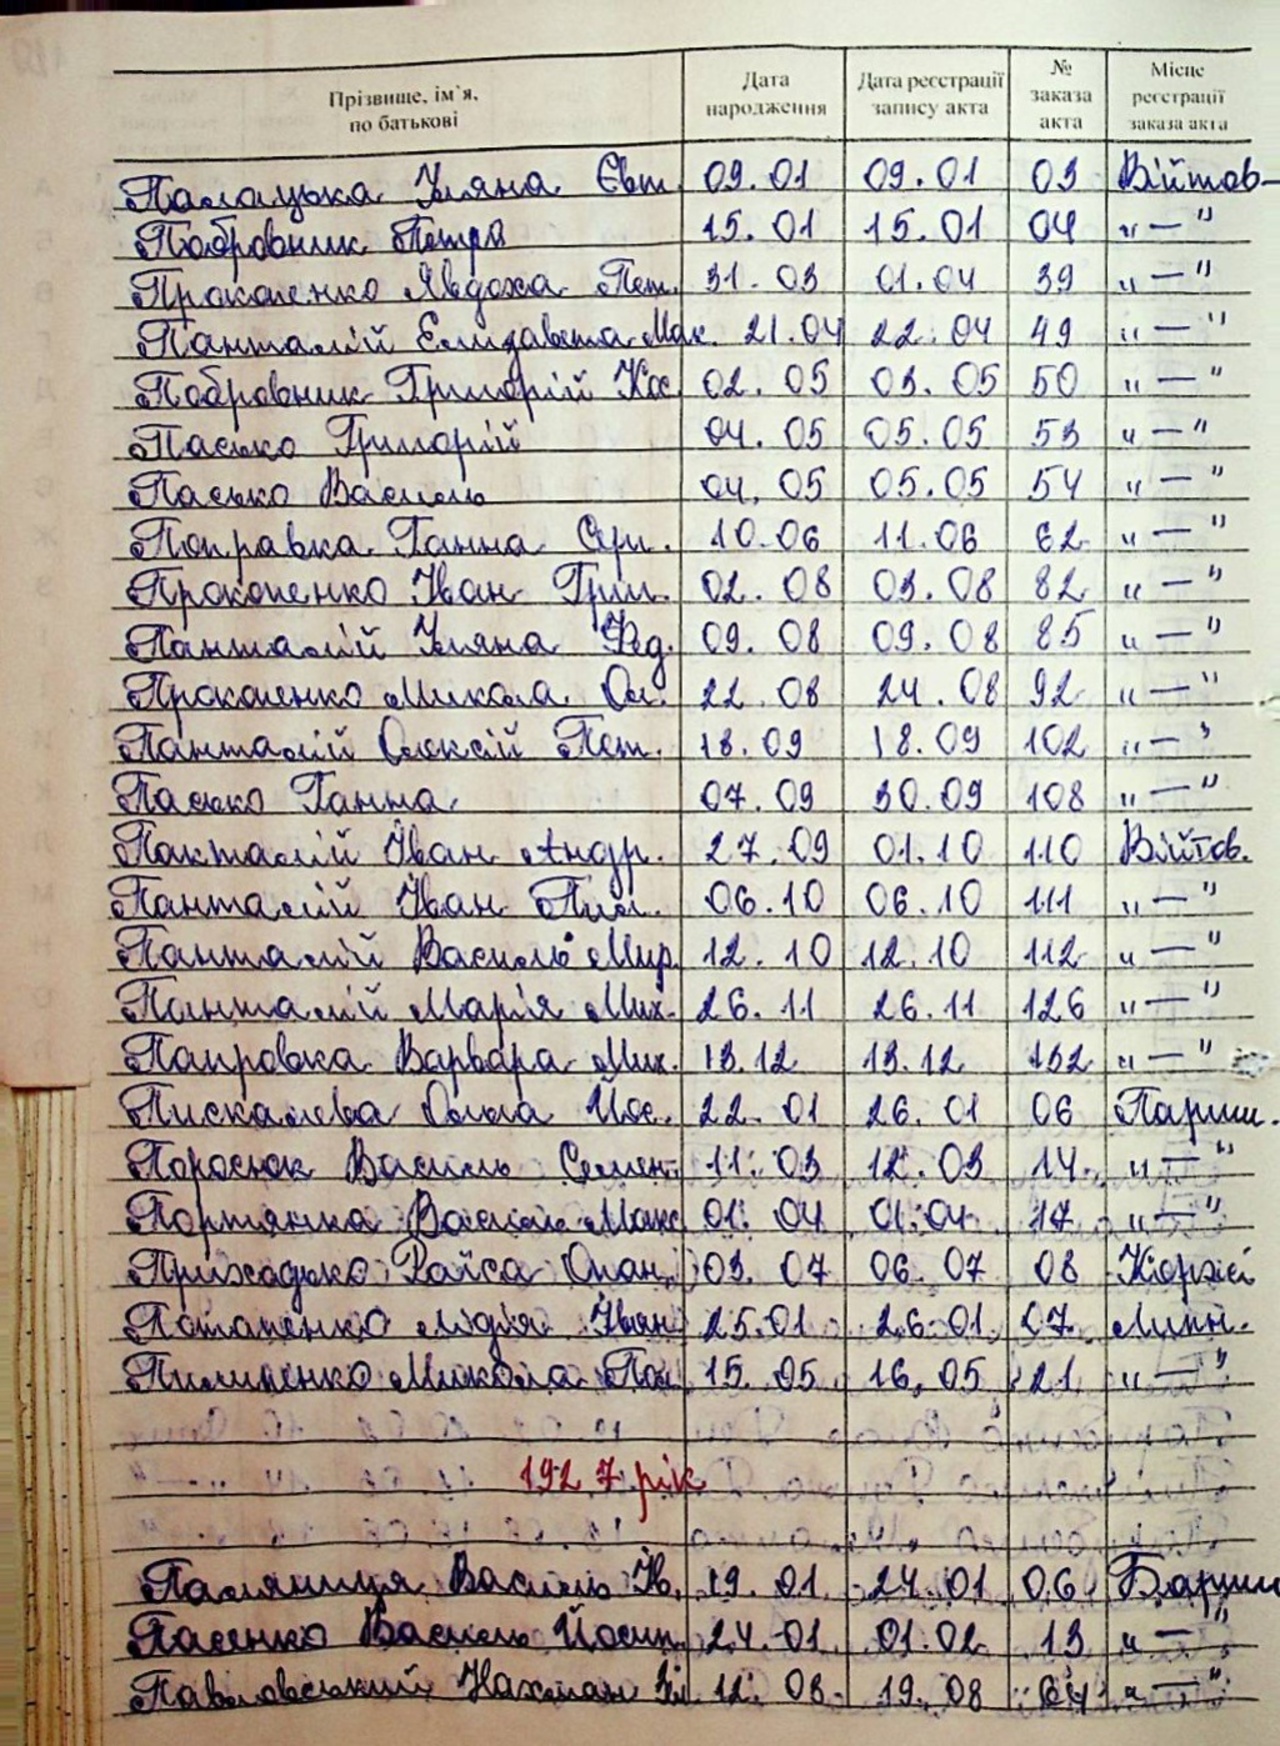 Прізвище, ім`я, по батькові Дата народження Дата реєстрації запису акта № заказа акта Місце реєстрації заказа акта
Паляцька Уляна Євт. 09.01 09.01 03 Війтов-
Побровник Петро 15.01 15.01 04 "—"
Прокопенко Явдоха Пет. 31.03 01.04 39 "—"
Панталій Елизавета Мак. 21.04 22.04 49 "—"
Побровник Григорій Кос. 02.05 03.05 50 "—"
Пасько Григорій 04.05 05.05 53 "—"
Пасько Василь 04.05 05.05 54 "—"
Поправка Ганна Сер. 10.06 11.06 62 "—"
Прокопенко Іван Григ. 02.08 03.08 82 "—"
Панталій Уляна Фед. 09.08 09.08 85 "—"
Прокопенко Микола Ол. 22.08 24.08 92 "—"
Панталій Олексій Пет. 18.09 18.09 102 "—"
Пасько Ганна 07.09 30.09 108 "—"
Панталій Іван Андр. 27.09 01.10 110 Війтов.
Панталій Іван Пил. 06.10 06.10 111 "—"
Панталій Василь Мир. 12.10 12.10 112 "—"
Панталій Марія Мих. 26.11 26.11 126 "—"
Папровка Варвара Мих. 13.12 13.12 132 "—"
Пискалєва Ольга Йос. 22.01 26.01 06 Париш.
Поросюк Василь Семен. 11.03 12.03 14 "—"
Портянка Василь Макс 01.04 01.04 17 "—"
Приходько Раїса Опан. 03.07 06.07 08 Коржі
Потапенко Лідія Іван 25.01 26.01 07 Липн.
Пилипенко Микола Пол 15.05 16.05 21 "—"
1927 рік
Паляниця Василь Ів. 19.01 24.01 06 Бариш
Пасенко Василь Йосип. 24.01 01.02 13 "—"
Павловський Нахман 12.08 19.08 64 "—"